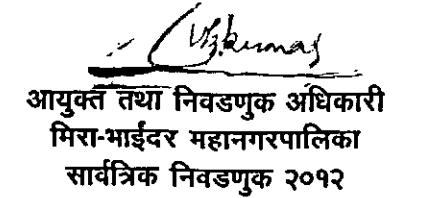 आयुक्त तथा निवडणुक अधिकारी
मिरा-भाईंदर महानगरपालिका
सार्वत्रिक निवडणुक २०१२